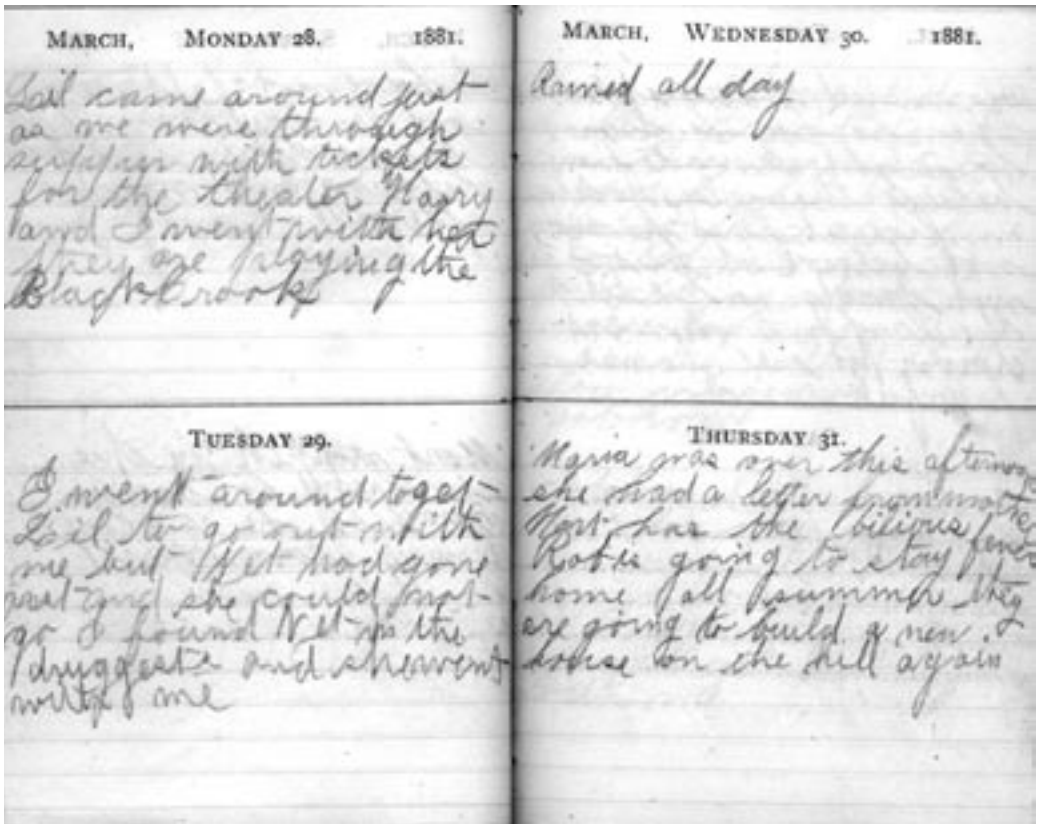 MARCH, MONDAY 28. 1881.
Lil came around just
as we were through
supper with tickets
for the theater Harry
and I went with her
they are playing the
Black Crook
TUESDAY 29.
I went around to get
Lil to go out with
me but Net had gone
out and she could not
go I found Net in the
druggists and she went
with me
MARCH, WEDNESDAY 30. 1881.
Rained all day
THURSDAY 31.
Maria was over this afternoon
she had a letter from
Mort has the bilious fever
Rob is going to stay
home all summer they
are going to build a new
house on the hill again